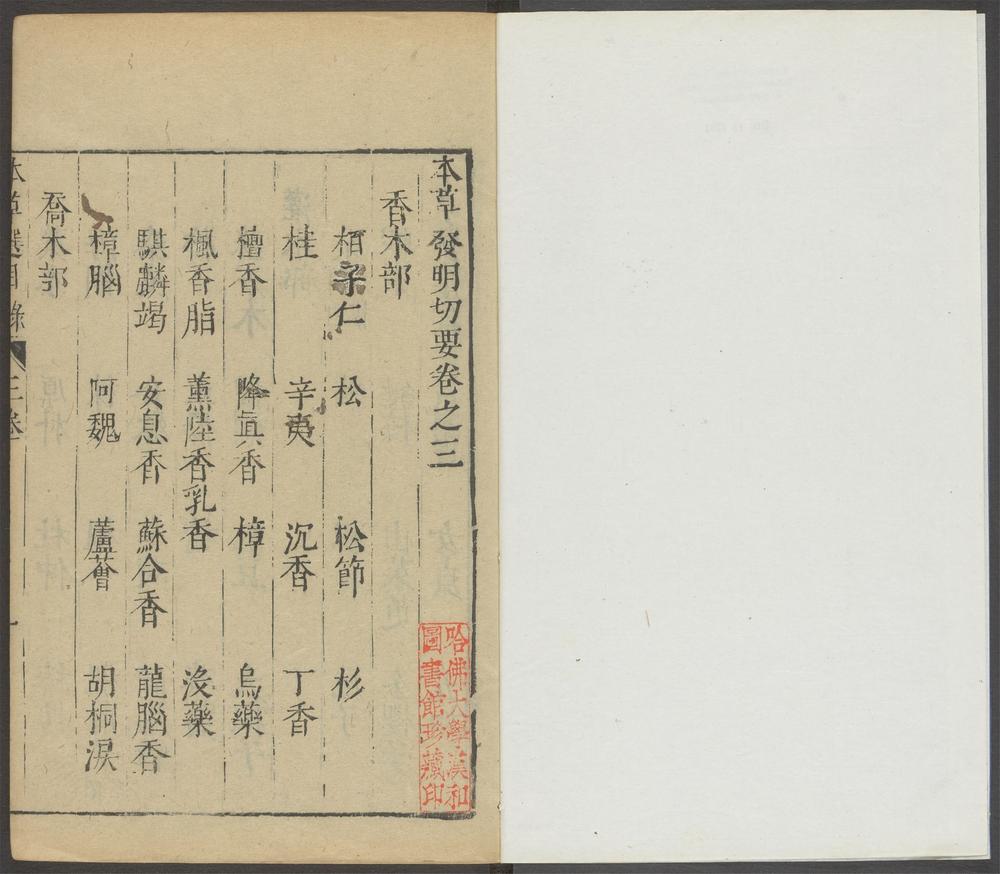 本草發明切要卷之三
香木部
栢子仁 松 松節 杉
桂 辛夷 沉香 丁香
檀香 降眞香 樟 烏藥
楓香脂 薰陸香乳香 沒藥
騏麟竭 安息香 蘇合香 龍腦香
樟腦 阿魏 蘆薈 胡桐淚
喬木部
本草選目錄 三卷 一
哈佛大學漢和
圖書館珍藏印